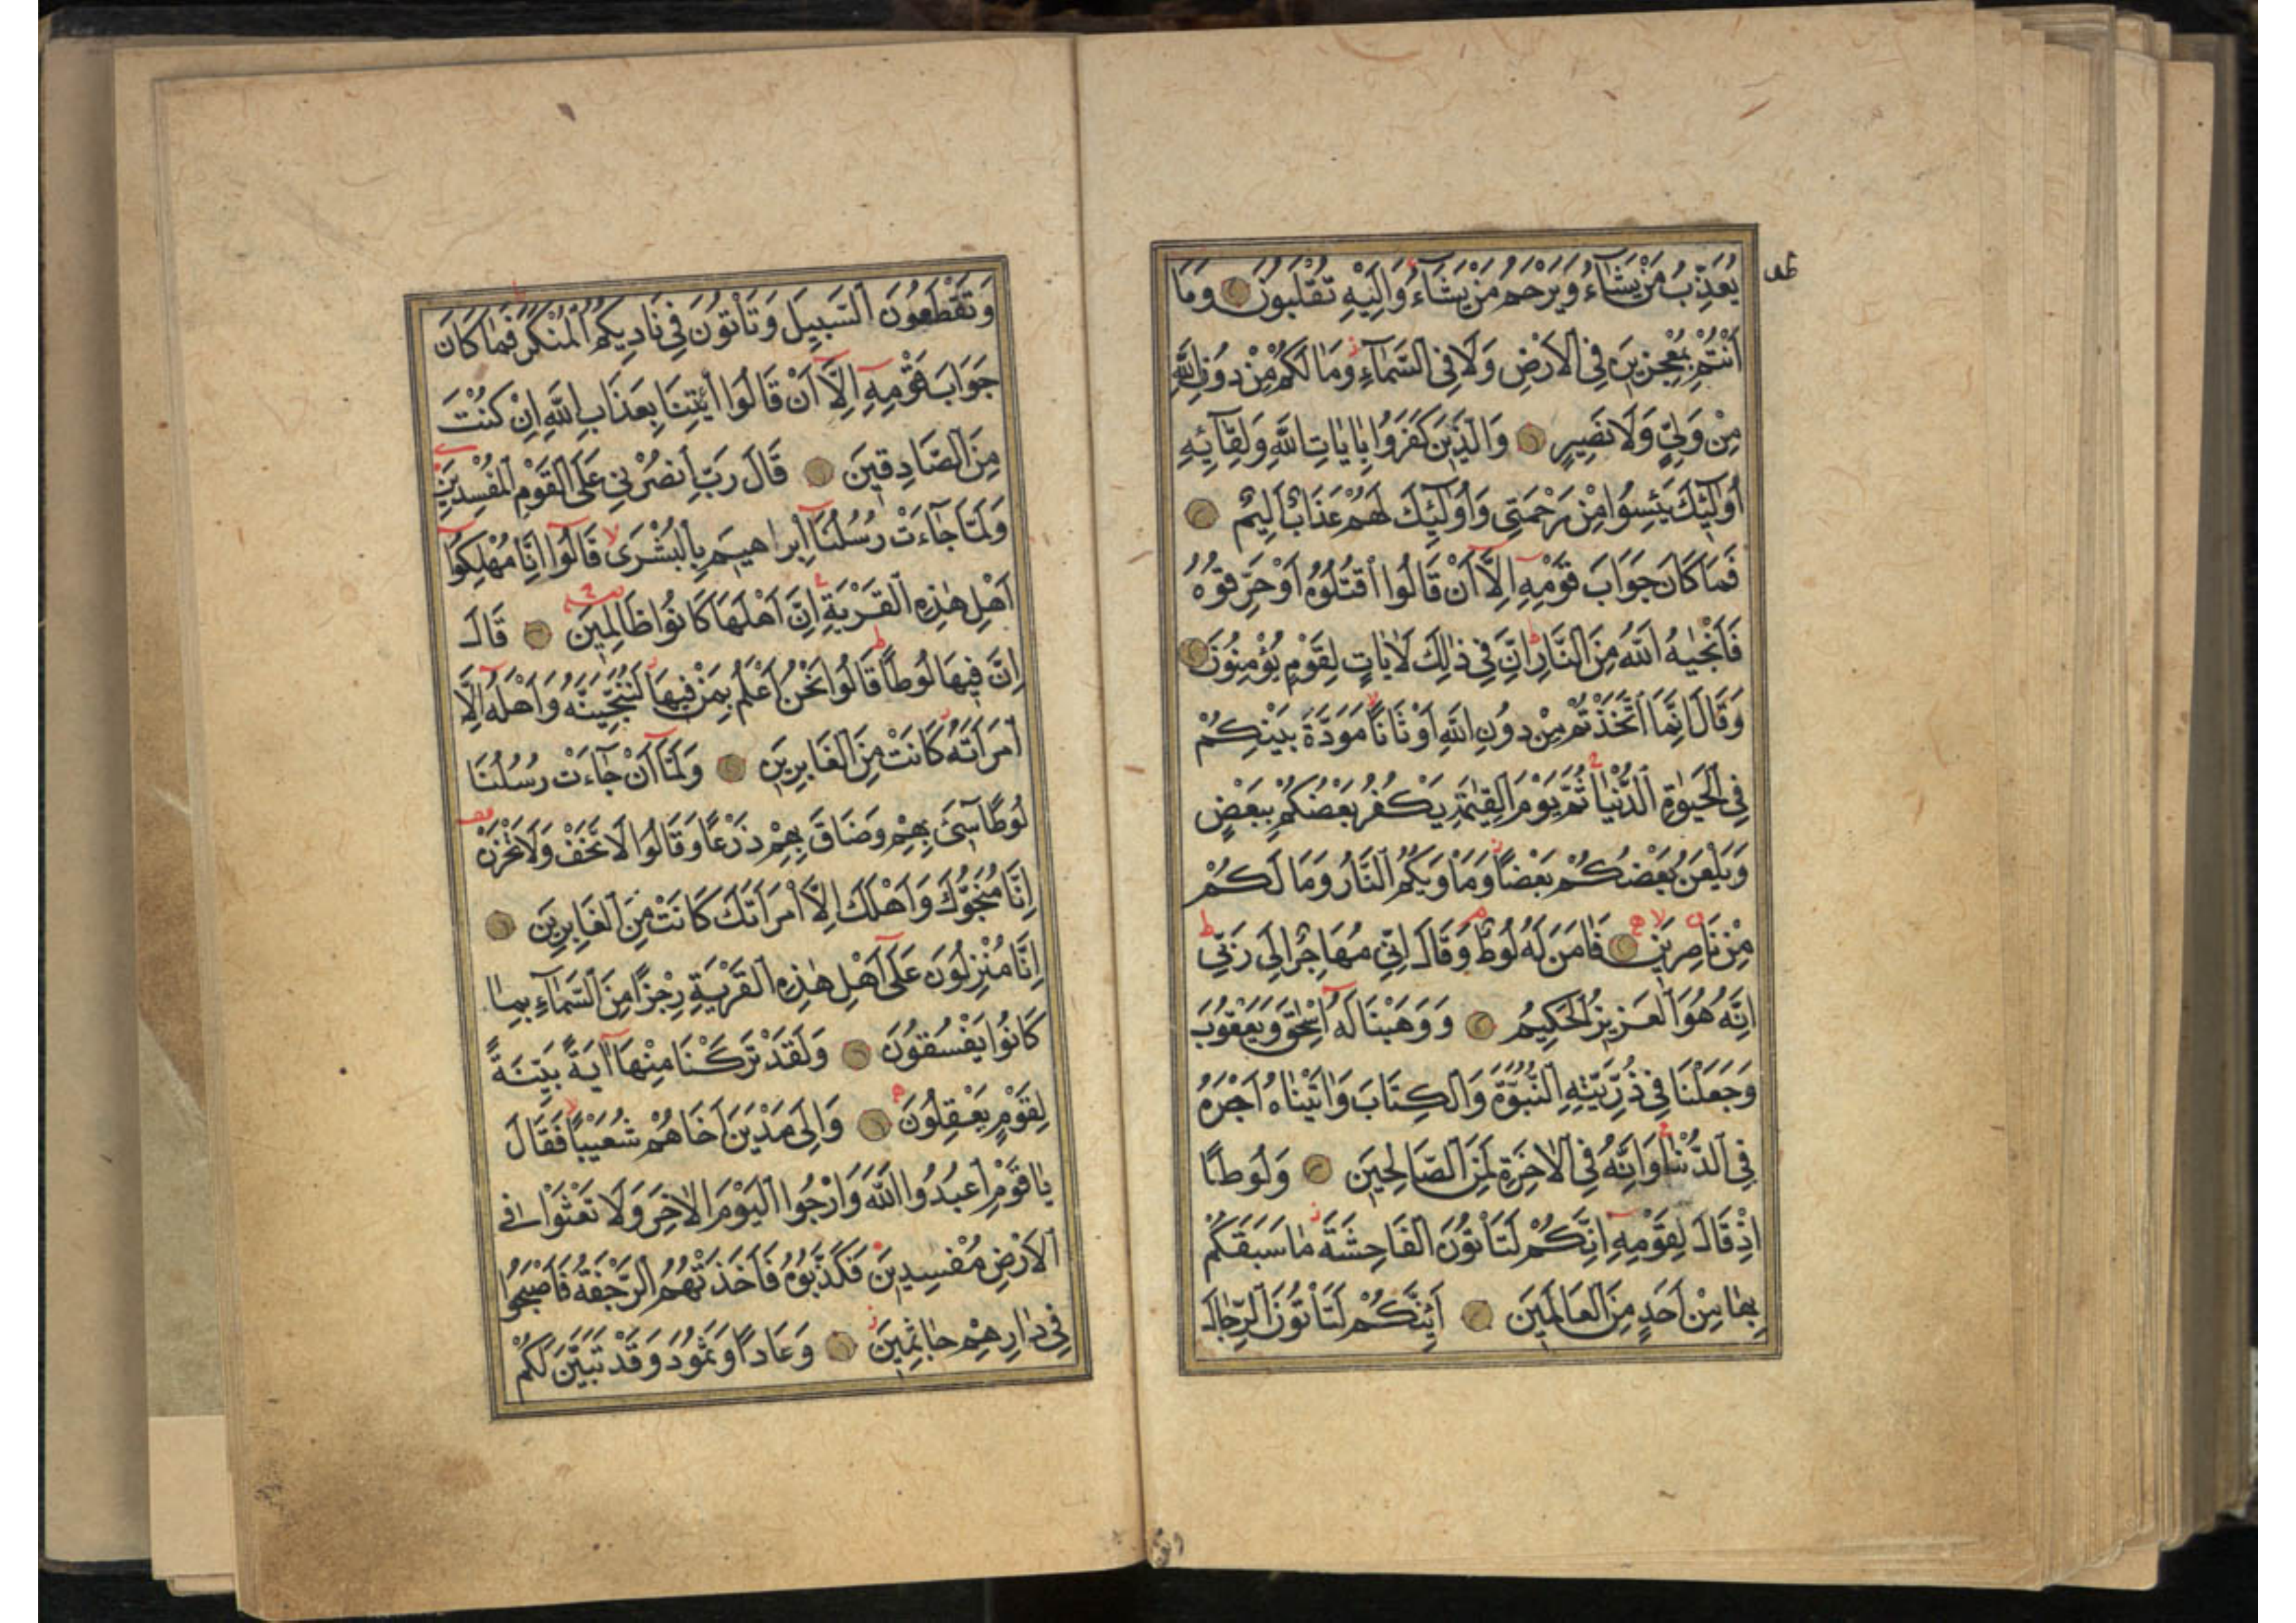 يُعَذِّبُ مَنْ يَشَاءُ وَيَرْحَمُ مَنْ يَشَاءُ وَاِلَيْهِ تُقْلَبُونَ وَمَا
اَنْتُمْ بِمُعْجِزِينَ فِي الْاَرْضِ وَلَا فِي السَّمَاءِ وَمَا لَكُمْ مِنْ دُونِ اللّٰهِ
مِنْ وَلِيٍّ وَلَا نَصِيرٍ وَالَّذِينَ كَفَرُوا بِاٰيَاتِ اللّٰهِ وَلِقَائِهِ
اُولٰئِكَ يَئِسُوا مِنْ رَحْمَتِي وَاُولٰئِكَ لَهُمْ عَذَابٌ اَلِيمٌ
فَمَا كَانَ جَوَابَ قَوْمِهِ اِلَّا اَنْ قَالُوا اقْتُلُوهُ اَوْ حَرِّقُوهُ
فَاَنْجٰيهُ اللّٰهُ مِنَ النَّارِ اِنَّ فِي ذٰلِكَ لَاٰيَاتٍ لِقَوْمٍ يُؤْمِنُونَ
وَقَالَ اِنَّمَا اتَّخَذْتُمْ مِنْ دُونِ اللّٰهِ اَوْثَانًا مَوَدَّةَ بَيْنِكُمْ
فِي الْحَيٰوةِ الدُّنْيَا ثُمَّ يَوْمَ الْقِيٰمَةِ يَكْفُرُ بَعْضُكُمْ بِبَعْضٍ
وَيَلْعَنُ بَعْضُكُمْ بَعْضًا وَمَاْوٰيكُمُ النَّارُ وَمَا لَكُمْ
مِنْ نَاصِرِينَ فَاٰمَنَ لَهُ لُوطٌ وَقَالَ اِنِّي مُهَاجِرٌ اِلٰى رَبِّي
اِنَّهُ هُوَ الْعَزِيزُ الْحَكِيمُ وَوَهَبْنَا لَهُ اِسْحٰقَ وَيَعْقُوبَ
وَجَعَلْنَا فِي ذُرِّيَّتِهِ النُّبُوَّةَ وَالْكِتَابَ وَاٰتَيْنَاهُ اَجْرَهُ
فِي الدُّنْيَا وَاِنَّهُ فِي الْاٰخِرَةِ لَمِنَ الصَّالِحِينَ وَلُوطًا
اِذْ قَالَ لِقَوْمِهِ اِنَّكُمْ لَتَاْتُونَ الْفَاحِشَةَ مَا سَبَقَكُمْ
بِهَا مِنْ اَحَدٍ مِنَ الْعَالَمِينَ اَئِنَّكُمْ لَتَاْتُونَ الرِّجَالَ
وَتَقْطَعُونَ السَّبِيلَ وَتَاْتُونَ فِي نَادِيكُمُ الْمُنْكَرَ فَمَا كَانَ
جَوَابَ قَوْمِهِ اِلَّا اَنْ قَالُوا ائْتِنَا بِعَذَابِ اللّٰهِ اِنْ كُنْتَ
مِنَ الصَّادِقِينَ قَالَ رَبِّ انْصُرْنِي عَلَى الْقَوْمِ الْمُفْسِدِينَ
وَلَمَّا جَاءَتْ رُسُلُنَا اِبْرَاهِيمَ بِالْبُشْرٰى قَالُوا اِنَّا مُهْلِكُوا
اَهْلِ هٰذِهِ الْقَرْيَةِ اِنَّ اَهْلَهَا كَانُوا ظَالِمِينَ قَالَ
اِنَّ فِيهَا لُوطًا قَالُوا نَحْنُ اَعْلَمُ بِمَنْ فِيهَا لَنُنَجِّيَنَّهُ وَاَهْلَهُ اِلَّا
امْرَاَتَهُ كَانَتْ مِنَ الْغَابِرِينَ وَلَمَّا اَنْ جَاءَتْ رُسُلُنَا
لُوطًا سِيءَ بِهِمْ وَضَاقَ بِهِمْ ذَرْعًا وَقَالُوا لَا تَخَفْ وَلَا تَحْزَنْ
اِنَّا مُنَجُّوكَ وَاَهْلَكَ اِلَّا امْرَاَتَكَ كَانَتْ مِنَ الْغَابِرِينَ
اِنَّا مُنْزِلُونَ عَلٰى اَهْلِ هٰذِهِ الْقَرْيَةِ رِجْزًا مِنَ السَّمَاءِ بِمَا
كَانُوا يَفْسُقُونَ وَلَقَدْ تَرَكْنَا مِنْهَا اٰيَةً بَيِّنَةً
لِقَوْمٍ يَعْقِلُونَ وَاِلٰى مَدْيَنَ اَخَاهُمْ شُعَيْبًا فَقَالَ
يَا قَوْمِ اعْبُدُوا اللّٰهَ وَارْجُوا الْيَوْمَ الْاٰخِرَ وَلَا تَعْثَوْا فِي
الْاَرْضِ مُفْسِدِينَ فَكَذَّبُوهُ فَاَخَذَتْهُمُ الرَّجْفَةُ فَاَصْبَحُوا
فِي دَارِهِمْ جَاثِمِينَ وَعَادًا وَثَمُودَ وَقَدْ تَبَيَّنَ لَكُمْ